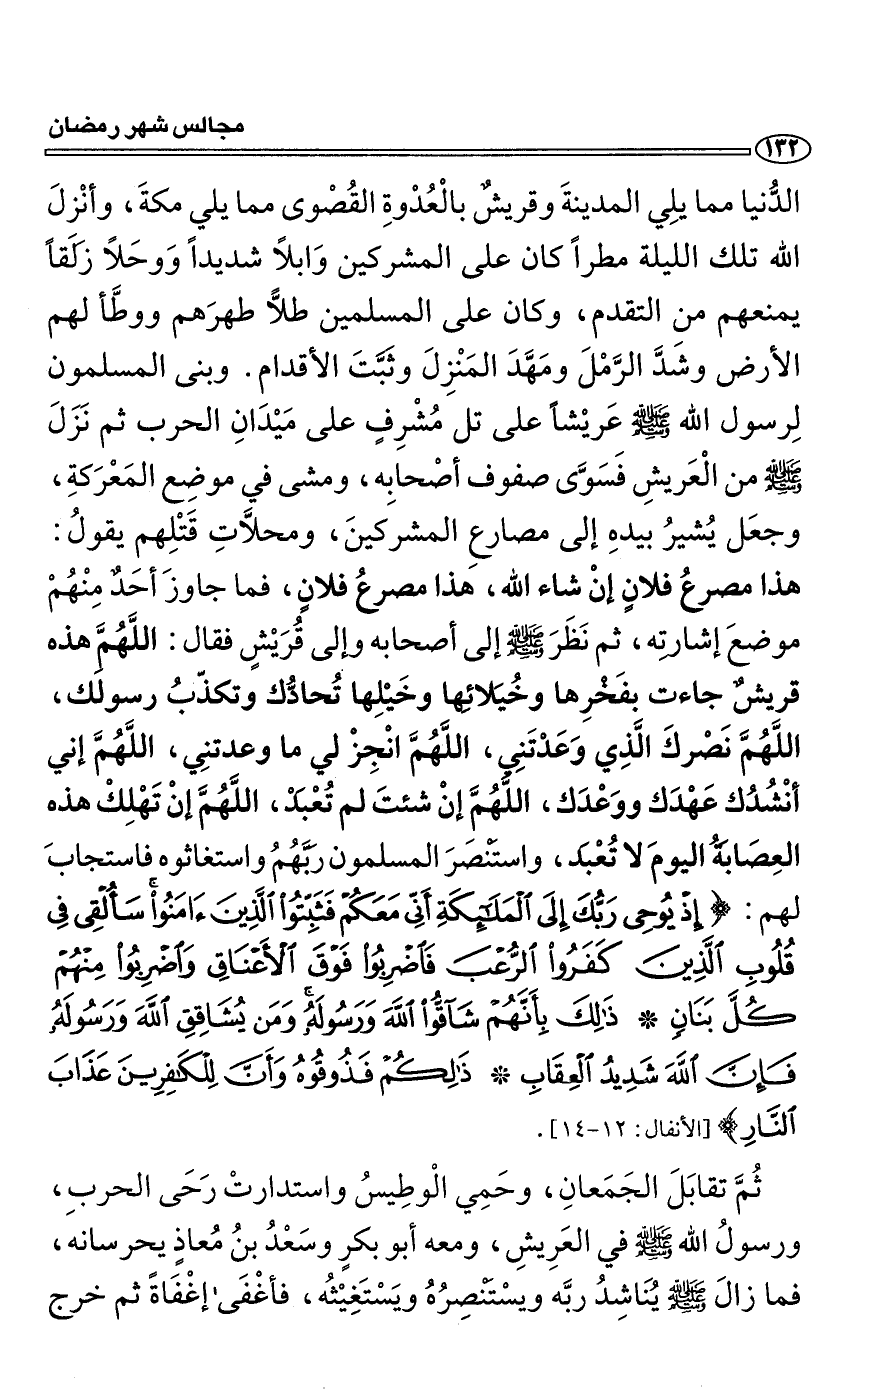 مجالس شهر رمضان
١٣٢
الدُّنيا مما يلِي المدينةَ وقريشٌ بالْعُدْوةِ القُصْوى مما يلي مكةَ، وأنْزلَ
الله تلك الليلة مطراً كان على المشركين وَابلاً شديداً وَوحَلاً زلَقاً
يمنعهم من التقدم، وكان على المسلمين طلاًّ طهرَهم ووطَّأ لهم
الأرض وشَدَّ الرَّمْلَ ومَهَّدَ المَنْزِلَ وثَبَّتَ الأقدام. وبنى المسلمون
لِرسول الله ﷺ عَريْشاً على تل مُشْرِفٍ على مَيْدَانِ الحرب ثم نَزَلَ
ﷺ من الْعَريشِ فَسَوَّى صفوف أصْحابِه، ومشى في موضِع المَعْرَكةِ،
وجعَل يُشيرُ بيدهِ إلى مصارعِ المشركينَ، ومحلاَّتِ قَتْلِهم يقولُ:
هذا مصرعُ فلانٍ إنْ شاء الله، هذا مصرعُ فلانٍ، فما جاوزَ أحَدٌ مِنْهُمْ
موضعَ إشارتِه، ثم نَظَرَ ﷺ إلى أصحابه وإلى قُرَيْشٍ فقال: اللَّهُمَّ هذه
قريشٌ جاءت بفَخْرِها وخُيَلائِها وخَيْلِها تُحادُّك وتكذّبُ رسولَك،
اللَّهُمَّ نَصْركَ الَّذِي وَعَدْتَنِي، اللَّهُمَّ انْجِزْ لي ما وعدتني، اللَّهُمَّ إني
أنْشُدُك عَهْدَك ووَعْدَك، اللَّهُمَّ إنْ شئتَ لم تُعْبَدْ، اللَّهُمَّ إنْ تَهْلِكْ هذه
العِصَابَةُ اليومَ لا تُعْبَد، واستَنْصَرَ المسلمون ربَّهُمُ واستغاثوه فاستجابَ
لهم: ﴿إِذْ يُوحِى رَبُّكَ إِلَى ٱلْمَلَٰٓئِكَةِ أَنِّى مَعَكُمْ فَثَبِّتُوا۟ ٱلَّذِينَ ءَامَنُوا۟ۚ سَأُلْقِى فِى
قُلُوبِ ٱلَّذِينَ كَفَرُوا۟ ٱلرُّعْبَ فَٱضْرِبُوا۟ فَوْقَ ٱلْأَعْنَاقِ وَٱضْرِبُوا۟ مِنْهُمْ
كُلَّ بَنَانٍ * ذَٰلِكَ بِأَنَّهُمْ شَآقُّوا۟ ٱللَّهَ وَرَسُولَهُۥۚ وَمَن يُشَاقِقِ ٱللَّهَ وَرَسُولَهُۥ
فَإِنَّ ٱللَّهَ شَدِيدُ ٱلْعِقَابِ * ذَٰلِكُمْ فَذُوقُوهُ وَأَنَّ لِلْكَٰفِرِينَ عَذَابَ
ٱلنَّارِ﴾ [الأنفال: ١٢-١٤].
ثُمَّ تقابَلَ الجَمَعانِ، وحَمِي الْوطِيسُ واستدارتْ رَحَى الحربِ،
ورسولُ الله ﷺ في العَرِيشِ، ومعه أبو بكرٍ وسَعْدُ بنُ مُعاذٍ يحرسانه،
فما زالَ ﷺ يُنَاشِدُ ربَّه ويسْتَنْصِرُهُ ويَسْتَغِيْثُه، فأغْفَى إغْفَاةً ثم خرج